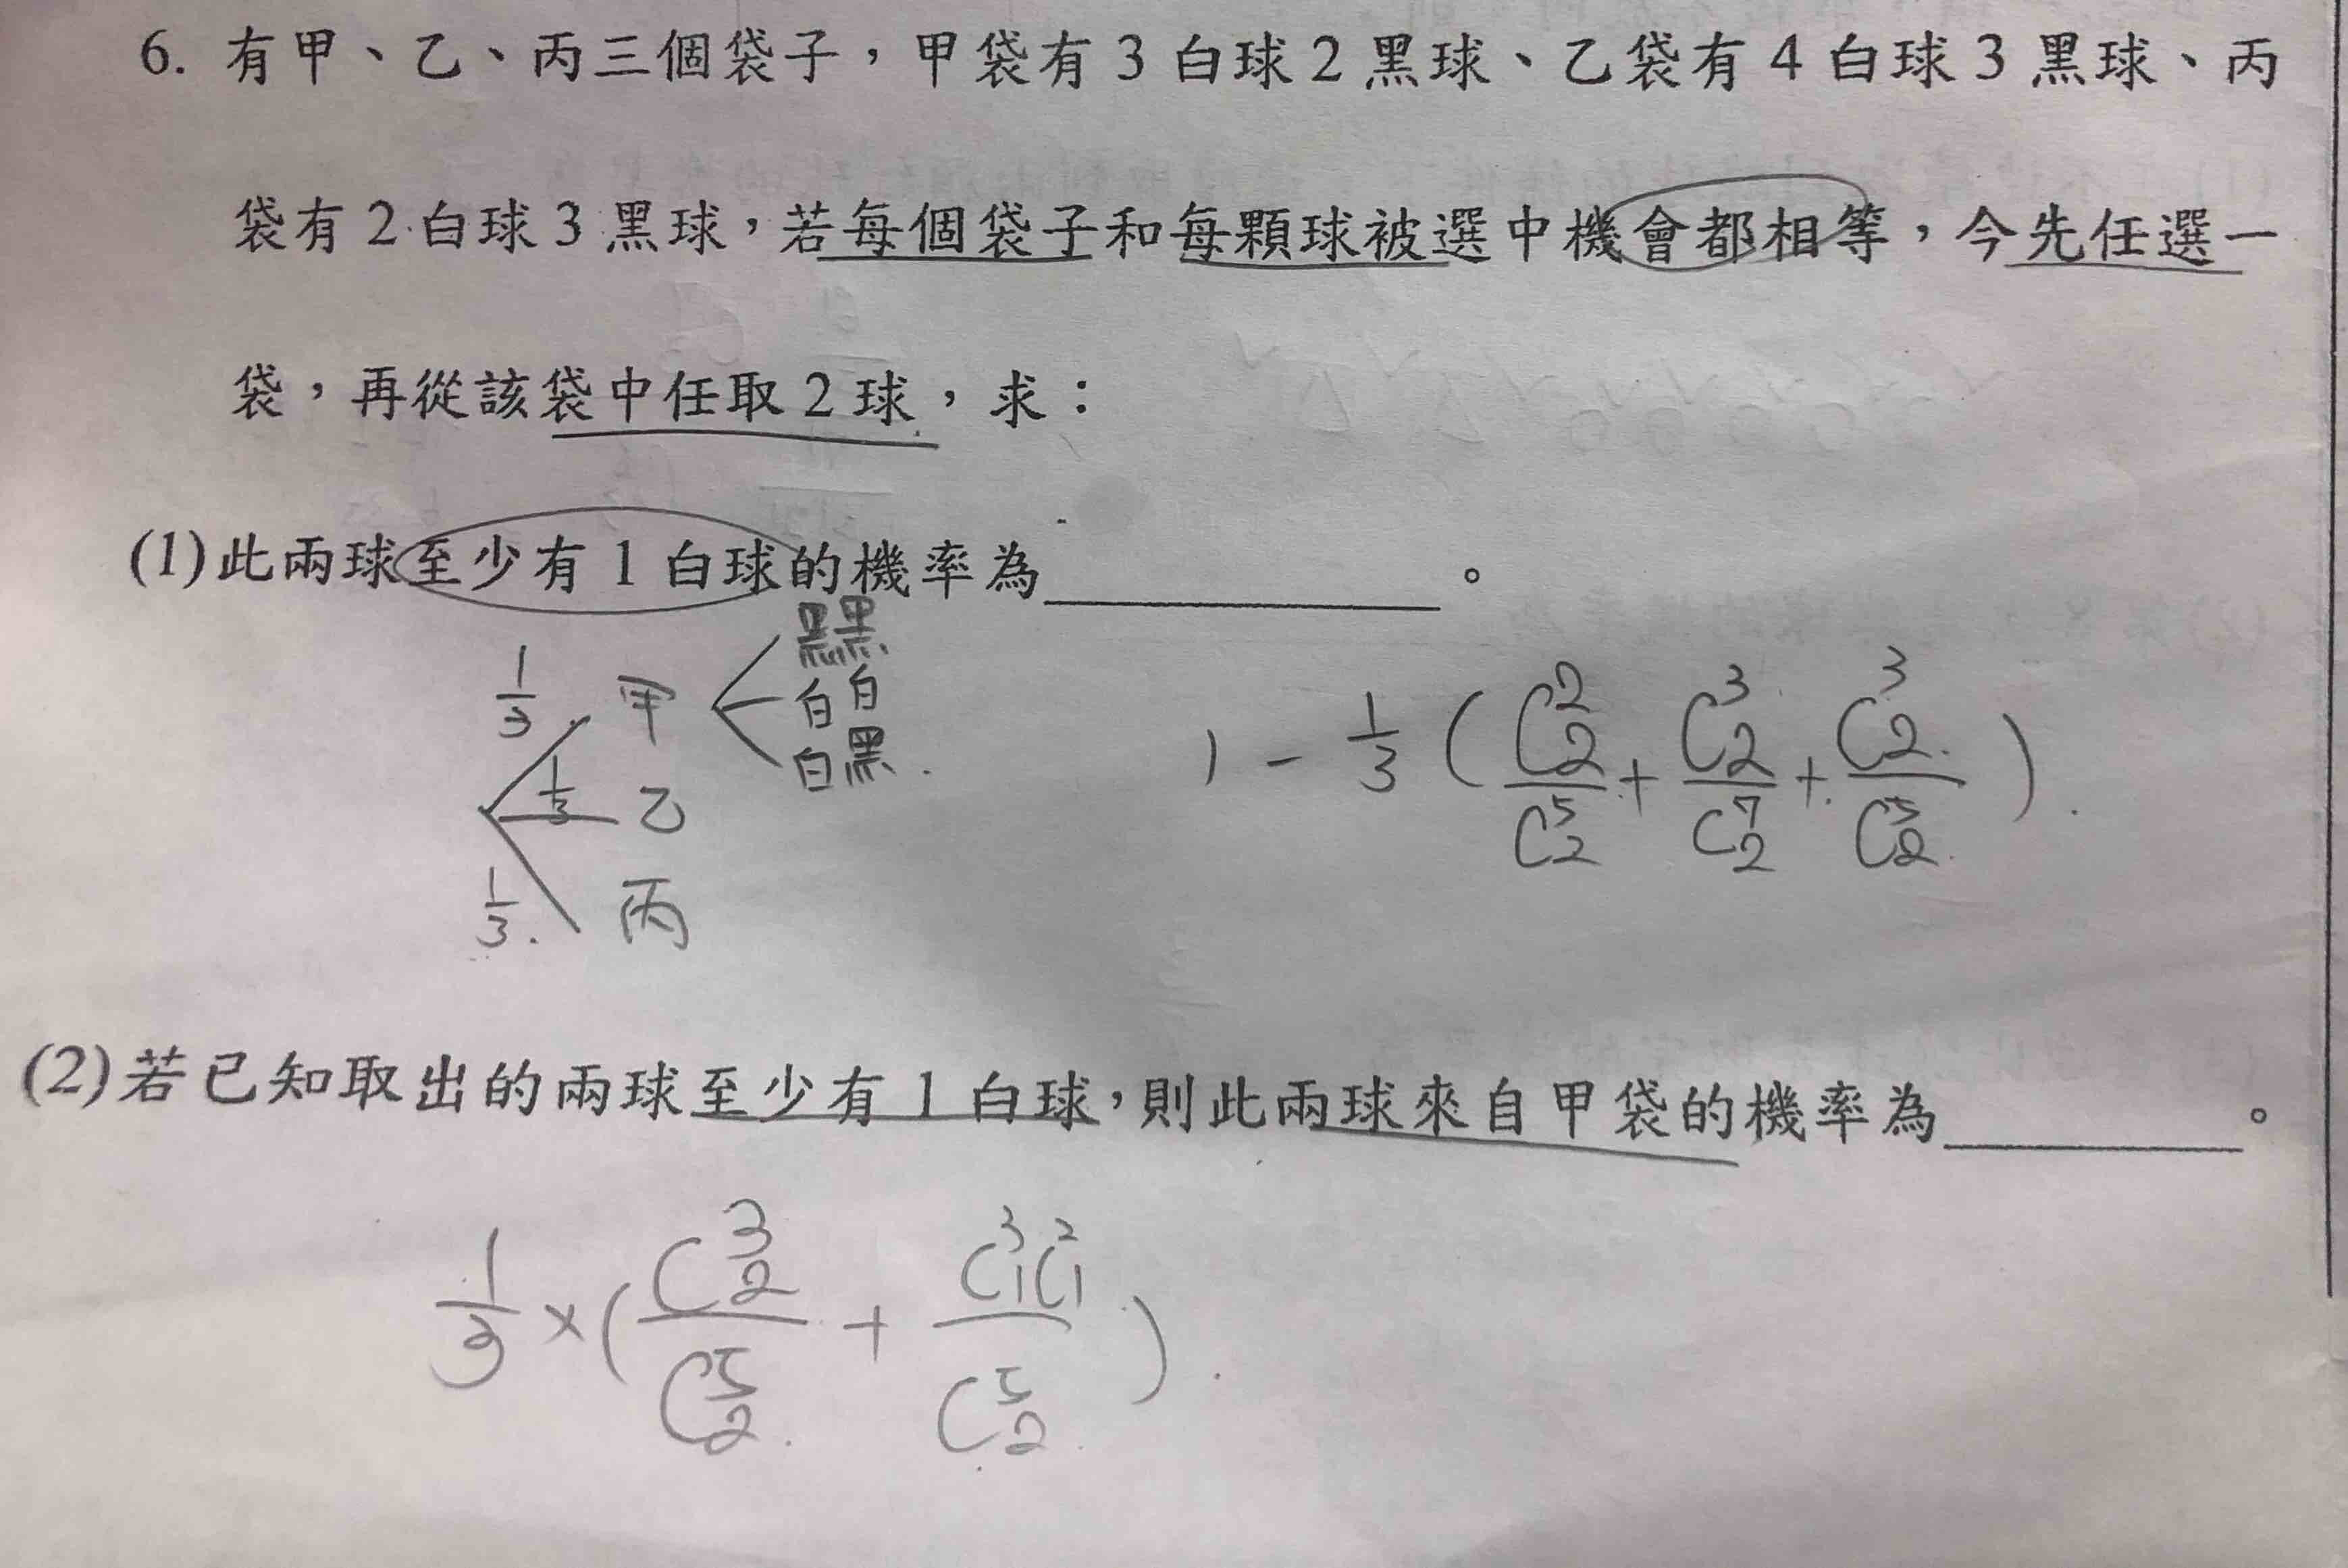 6. 有甲、乙、丙三個袋子，甲袋有 3 白球 2 黑球、乙袋有 4 白球 3 黑球、丙
袋有 2 白球 3 黑球，若每個袋子和每顆球被選中機會都相等，今先任選一
袋，再從該袋中任取 2 球，求：
(1)此兩球至少有 1 白球的機率為＿＿＿＿＿＿。
1/3 甲 黑黑
白白
白黑
1/3 乙
1/3 丙
1 - 1/3 ( C^2_2/C^5_2 + C^3_2/C^7_2 + C^3_2/C^5_2 )
(2)若已知取出的兩球至少有 1 白球，則此兩球來自甲袋的機率為＿＿＿＿＿。
1/3 × ( C^3_2/C^5_2 + C^3_1 C^2_1/C^5_2 )